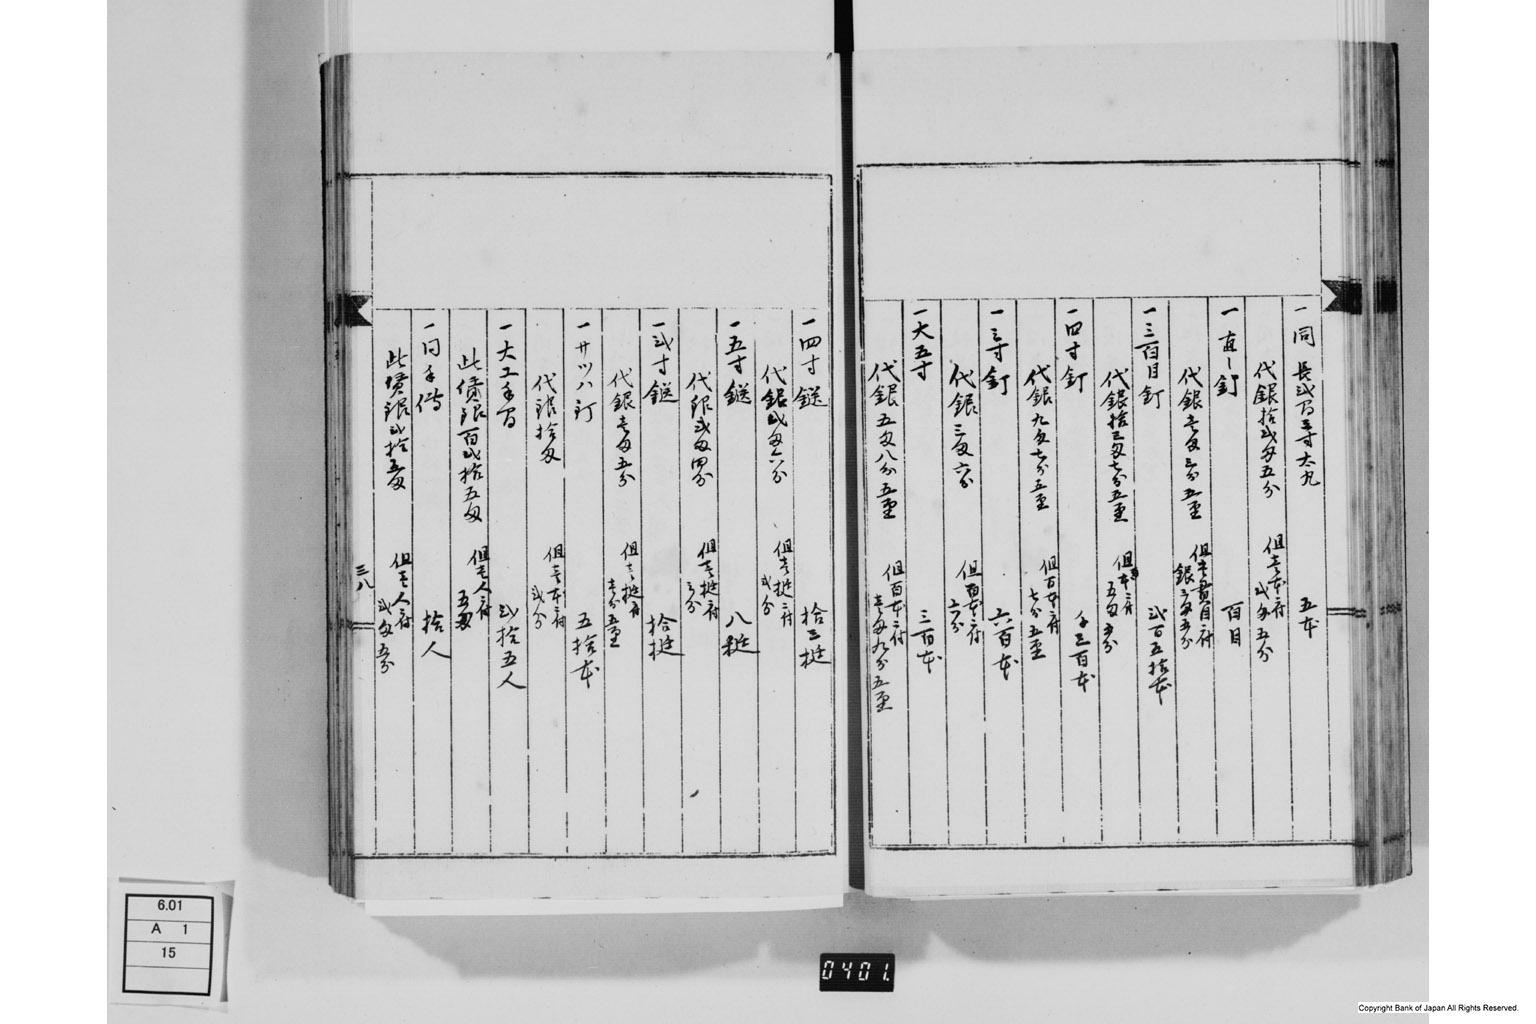 一同 長弐間五寸 大丸 五本
代銀拾弐匁五分 但壱本ニ付 弐匁五分
一直シ釘 百目
代銀壱匁三分五厘 但 百目ニ付 銀
一三百目釘 弐百五拾本
代銀拾三匁七分五厘 但 本ニ付 五匁五分
一四寸釘 千三百本
代銀九匁七分五厘 但百本ニ付 七分五厘
一三寸釘 六百本
代銀三匁六分 但百本ニ付 六分
一大五寸 三百本
代銀五匁八分五厘 但百本ニ付 壱匁九分五厘
一四寸鎹 拾三挺
代銀弐匁六分 但壱挺ニ付 弐分
一五寸鎹 八挺
代銀弐匁四分 但壱挺ニ付 三分
一弐寸鎹 拾挺
代銀壱匁五分 但壱挺ニ付 壱分五厘
一カツハ釘 五拾本
代銀拾匁 但壱本ニ付 弐分
一大工手間 弐拾五人
此賃銀百弐拾五匁 但壱人ニ付 五匁
一同手伝 拾人
此賃銀弐拾五匁 但壱人ニ付 弐匁五分
三八
6.01
A 1
15
0401.
Copyright Bank of Japan All Rights Reserved.